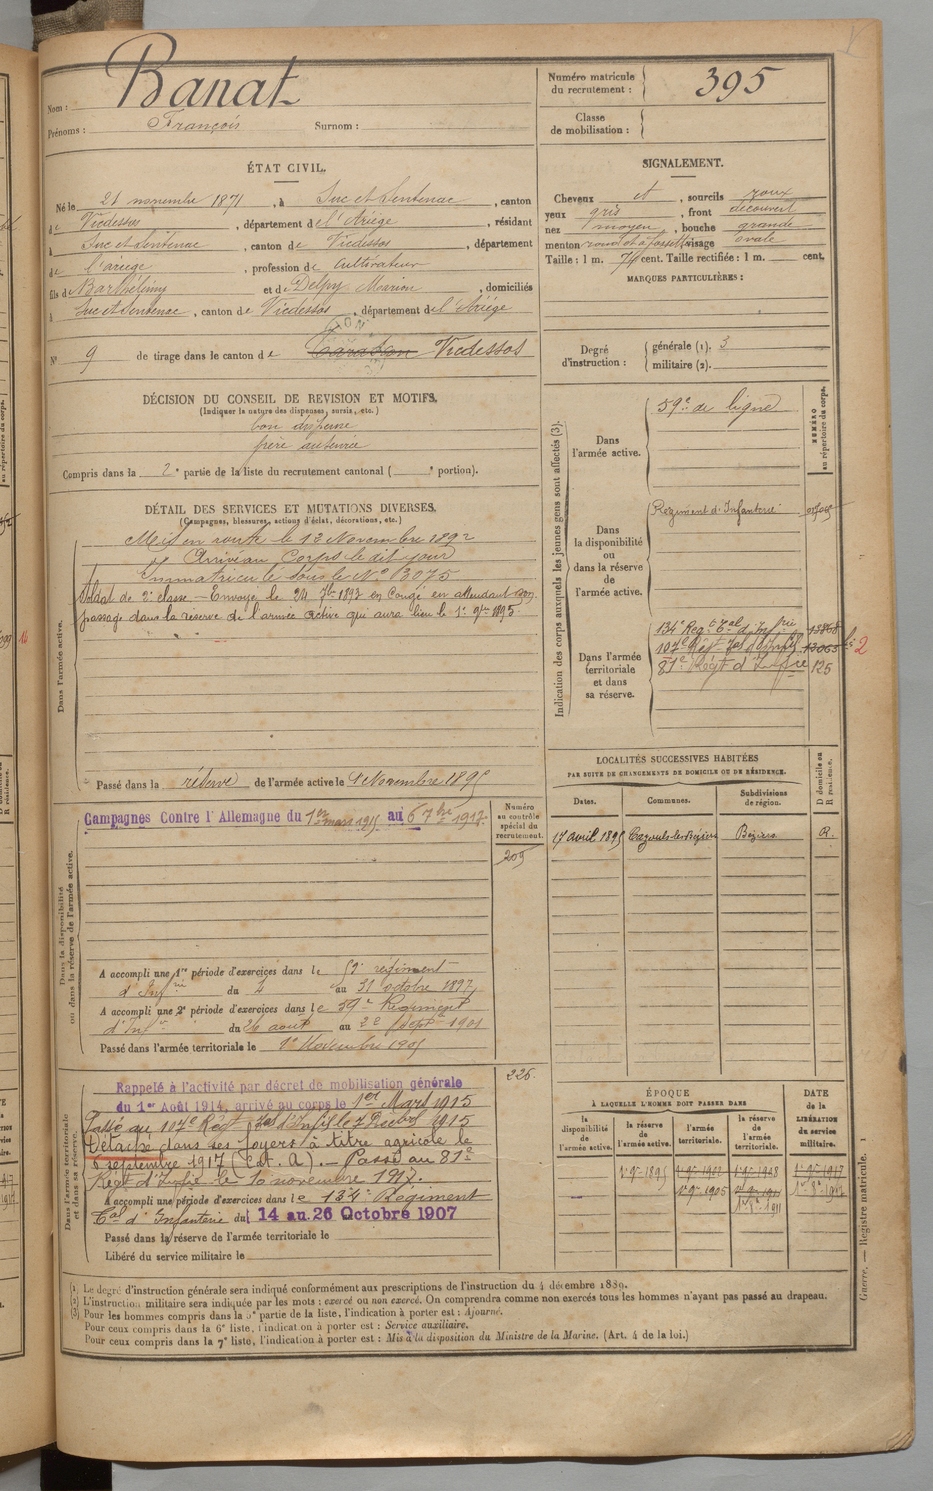 Nom : Banat
Prénoms : François Surnom :
Numéro matricule du recrutement : 395
Classe de mobilisation :
ÉTAT CIVIL.
Né le 21 novembre 1871, à Suc et Sentenac, canton
de Vicdessos, département de l'Ariège, résidant
à Suc et Sentenac, canton de Vicdessos, département
de l'ariege, profession de Cultivateur
fils de Barthélemy et de Delpy Marion, domiciliés
à Suc et Sentenac, canton de Vicdessos, département de l'Ariége
N° 9 de tirage dans le canton de Tarascon Vicdessos
SIGNALEMENT.
Cheveux et, sourcils roux
yeux gris, front découvert
nez moyen, bouche grande
menton rond et à fossette visage ovale
Taille : 1 m. 74 cent. Taille rectifiée : 1 m. cent.
MARQUES PARTICULIÈRES :
Degré d'instruction : générale (1). 3
militaire (2).
DÉCISION DU CONSEIL DE REVISION ET MOTIFS.
(Indiquer la nature des dispenses, sursis, etc.)
bon dispense
Compris dans la 2e partie de la liste du recrutement cantonal ( e portion).
DÉTAIL DES SERVICES ET MUTATIONS DIVERSES.
(Campagnes, blessures, actions d'éclat, décorations, etc.)
Dans l'armée active.
Mis en route le 13 Novembre 1892
Arrivé au Corps le dit jour
Immatriculé sous le N° 3075
Soldat de 2e classe. — Envoyé le 24 7bre 1893 en Congé en attendant son
passage dans la réserve de l'armée active qui aura lieu le 1er 9bre 1895.
Passé dans la réserve de l'armée active le 1 Novembre 1895
Indication des corps auxquels les jeunes gens sont affectés (3).
NUMÉRO au répertoire du corps.
Dans l'armée active.
59e de ligne
Dans la disponibilité ou dans la réserve de l'armée active.
Regiment d'Infanterie
Dans l'armée territoriale et dans sa réserve.
134e Regt Tal d'Infrie 13868
107e Régt Tal d'Inf 13063
81e Régt d'Infrie 125
2
LOCALITÉS SUCCESSIVES HABITÉES
PAR SUITE DE CHANGEMENTS DE DOMICILE OU DE RÉSIDENCE.
Dates. Communes. Subdivisions de région. D domicile ou R résidence.
17 avril 1895 Cazouls-les-Béziers Béziers R.
Dans la disponibilité ou dans la réserve de l'armée active.
Campagnes Contre l'Allemagne du 1er mars 1915 au 6 7bre 1917.
Numéro au contrôle spécial du recrutement.
209
A accompli une 1re période d'exercices dans le 59e regiment
d'Infrie du 4 au 31 octobre 1897
A accompli une 2e période d'exercices dans le 59e Régiment
d'Infie du 26 août au 22 Septre 1901
Passé dans l'armée territoriale le 1er Novembre 1905
226.
Dans l'armée territoriale et dans sa réserve.
Rappelé à l'activité par décret de mobilisation générale
du 1er Août 1914, arrivé au corps le 1er Mars 1915
Passé au 107e Régt Tal d'Inf le 7 1915
Détaché dans ses foyers à titre agricole le
6 septembre 1917 (Cat. A). — Passé au 81e
Régt d'Infie le 10 novembre 1917.
A accompli une période d'exercices dans le 134e Régiment
Tal d'Infanterie du 14 au 26 Octobre 1907
Passé dans la réserve de l'armée territoriale le
Libéré du service militaire le
ÉPOQUE
À LAQUELLE L'HOMME DOIT PASSER DANS
la disponibilité de l'armée active. la réserve de l'armée active. l'armée territoriale. la réserve de l'armée territoriale. DATE de la LIBÉRATION du service militaire.
1er 9bre 1895
1er 9bre 1905
(1) Le degré d'instruction générale sera indiqué conformément aux prescriptions de l'instruction du 4 décembre 1889.
(2) L'instruction militaire sera indiquée par les mots : exercé ou non exercé. On comprendra comme non exercés tous les hommes n'ayant pas passé au drapeau.
(3) Pour les hommes compris dans la 5e partie de la liste, l'indication à porter est : Ajourné.
Pour ceux compris dans la 6e liste, l'indication à porter est : Service auxiliaire.
Pour ceux compris dans la 7e liste, l'indication à porter est : Mis à la disposition du Ministre de la Marine. (Art. 4 de la loi.)
Guerre. — Registre matricule. 1